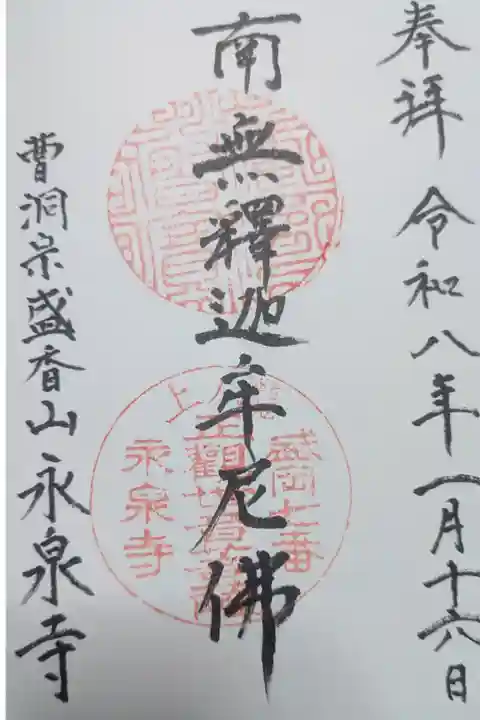 奉拜 令和八年一月十六日
南無釋迦牟尼佛
曹洞宗盛香山永泉寺
盛岡七番
正觀世音菩薩
永泉寺